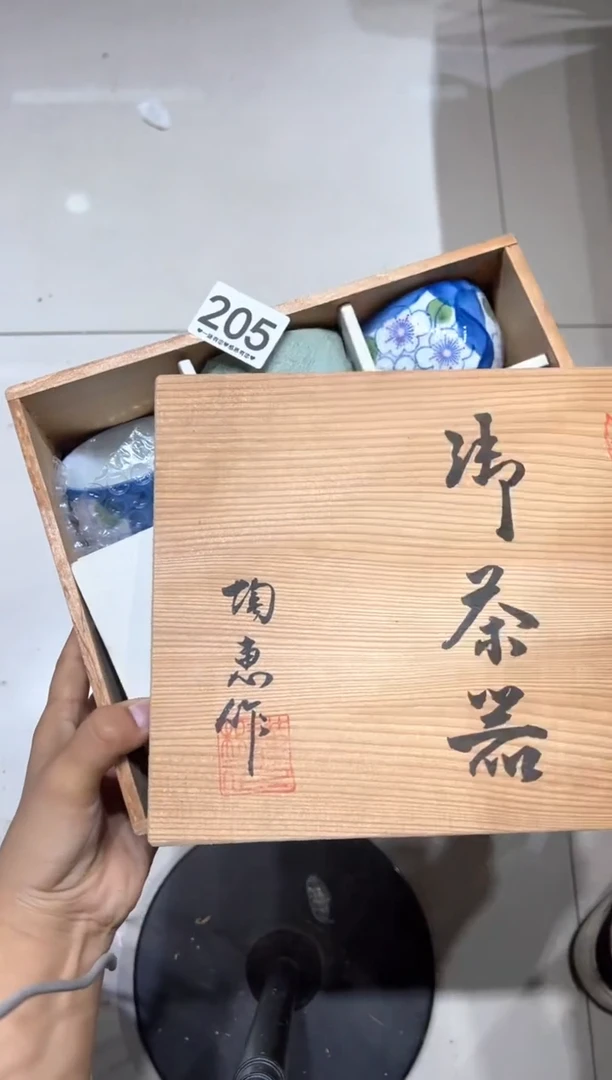 205
御茶器
陶恵作